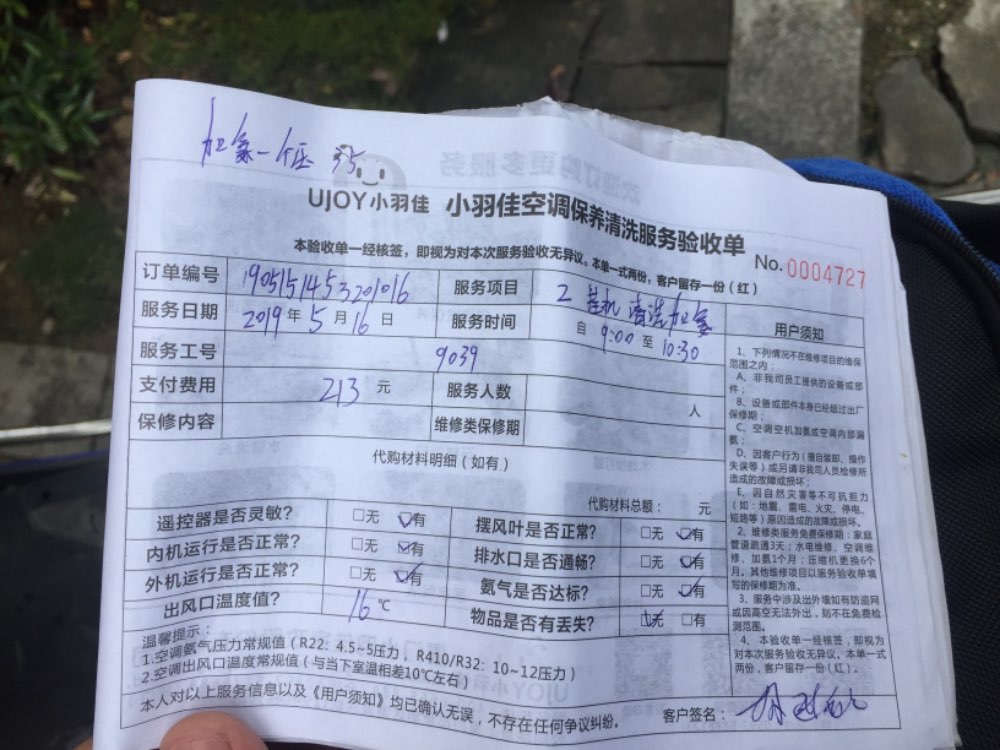 加氨一个压 35
UJOY小羽佳 小羽佳空调保养清洗服务验收单
本验收单一经核签，即视为对本次服务验收无异议。本单一式两份，客户留存一份（红）
No. 0004727
订单编号 1905151453201016 服务项目 2 挂机 清洗加氨
服务日期 2019年5月16日 服务时间 自 9:00 至 10:30
服务工号 9039
支付费用 213 元 服务人数 人
保修内容 维修类保修期
代购材料明细（如有）
代购材料总额： 元
遥控器是否灵敏？ □无 ☑有 摆风叶是否正常？ □无 ☑有
内机运行是否正常？ □无 ☑有 排水口是否通畅？ □无 ☑有
外机运行是否正常？ □无 ☑有 氨气是否达标？ □无 ☑有
出风口温度值？ 16 ℃ 物品是否有丢失？ ☑无 □有
温馨提示：
1.空调氨气压力常规值（R22：4.5~5压力，R410/R32：10~12压力）
2.空调出风口温度常规值（与当下室温相差10℃左右）
本人对以上服务信息以及《用户须知》均已确认无误，不存在任何争议纠纷。
客户签名：
用户须知
1、下列情况不在维修项目的维保
范围之内：
A、非我司员工提供的设备或部
件；
B、设备或部件本身已经超过出厂
保修期；
C、空调空机加氨或空调内部漏
氨；
D、因客户行为（擅自装卸、操作
失误等）或另请非我司人员检修所
造成的故障或损坏；
E、因自然灾害等不可抗拒力
（如：地震、雷电、火灾、停电、
短路等）原因造成的故障或损坏。
2、维修类服务免费保修期：家庭
管道疏通3天；水电维修、空调维
修、加氨1个月；压缩机更换6个
月。其他维修项目以服务验收单填
写的保修期为准。
3、服务中涉及出外墙如有防盗网
或因高空无法外出，则不在免费检
测范围。
4、本验收单一经核签，即视为
对本次服务验收无异议。本单一式
两份，客户留存一份（红）。